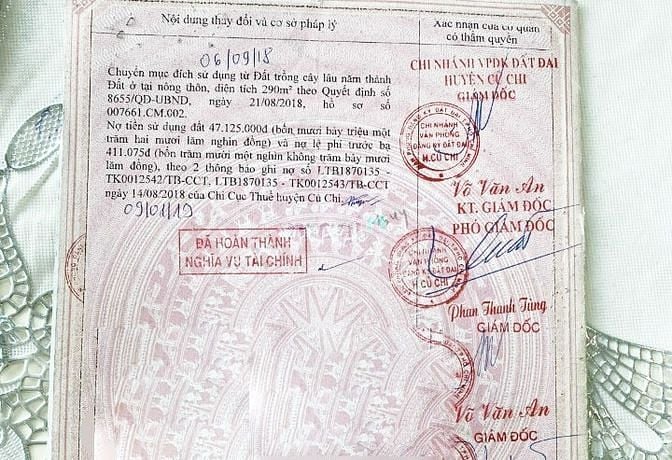 Nội dung thay đổi và cơ sở pháp lý
Xác nhận của cơ quan
có thẩm quyền
06/09/18
Chuyển mục đích sử dụng từ Đất trồng cây lâu năm thành
Đất ở tại nông thôn, diện tích 290m² theo Quyết định số
8655/QD-UBND, ngày 21/08/2018, hồ sơ số
007661.CM.002.
Nợ tiền sử dụng đất 47.125.000đ (bốn mươi bảy triệu một
trăm hai mươi lăm nghìn đồng) và nợ lệ phí trước bạ
411.075đ (bốn trăm mười một nghìn không trăm bảy mươi
lăm đồng), theo 2 thông báo ghi nợ số LTB1870135 -
TK0012542/TB-CCT, LTB1870135 - TK0012543/TB-CCT
ngày 14/08/2018 của Chi Cục Thuế huyện Củ Chi.
09/01/19
ĐÃ HOÀN THÀNH
NGHĨA VỤ TÀI CHÍNH
CHI NHÁNH VPĐK ĐẤT ĐAI
HUYỆN CỦ CHI
GIÁM ĐỐC
CHI NHÁNH
VĂN PHÒNG
ĐĂNG KÝ ĐẤT ĐAI
H.CỦ CHI
Võ Văn An
KT. GIÁM ĐỐC
PHÓ GIÁM ĐỐC
CHI NHÁNH
VĂN PHÒNG
ĐĂNG KÝ ĐẤT ĐAI
H.CỦ CHI
Phan Thanh Tùng
GIÁM ĐỐC
Võ Văn An
GIÁM ĐỐC